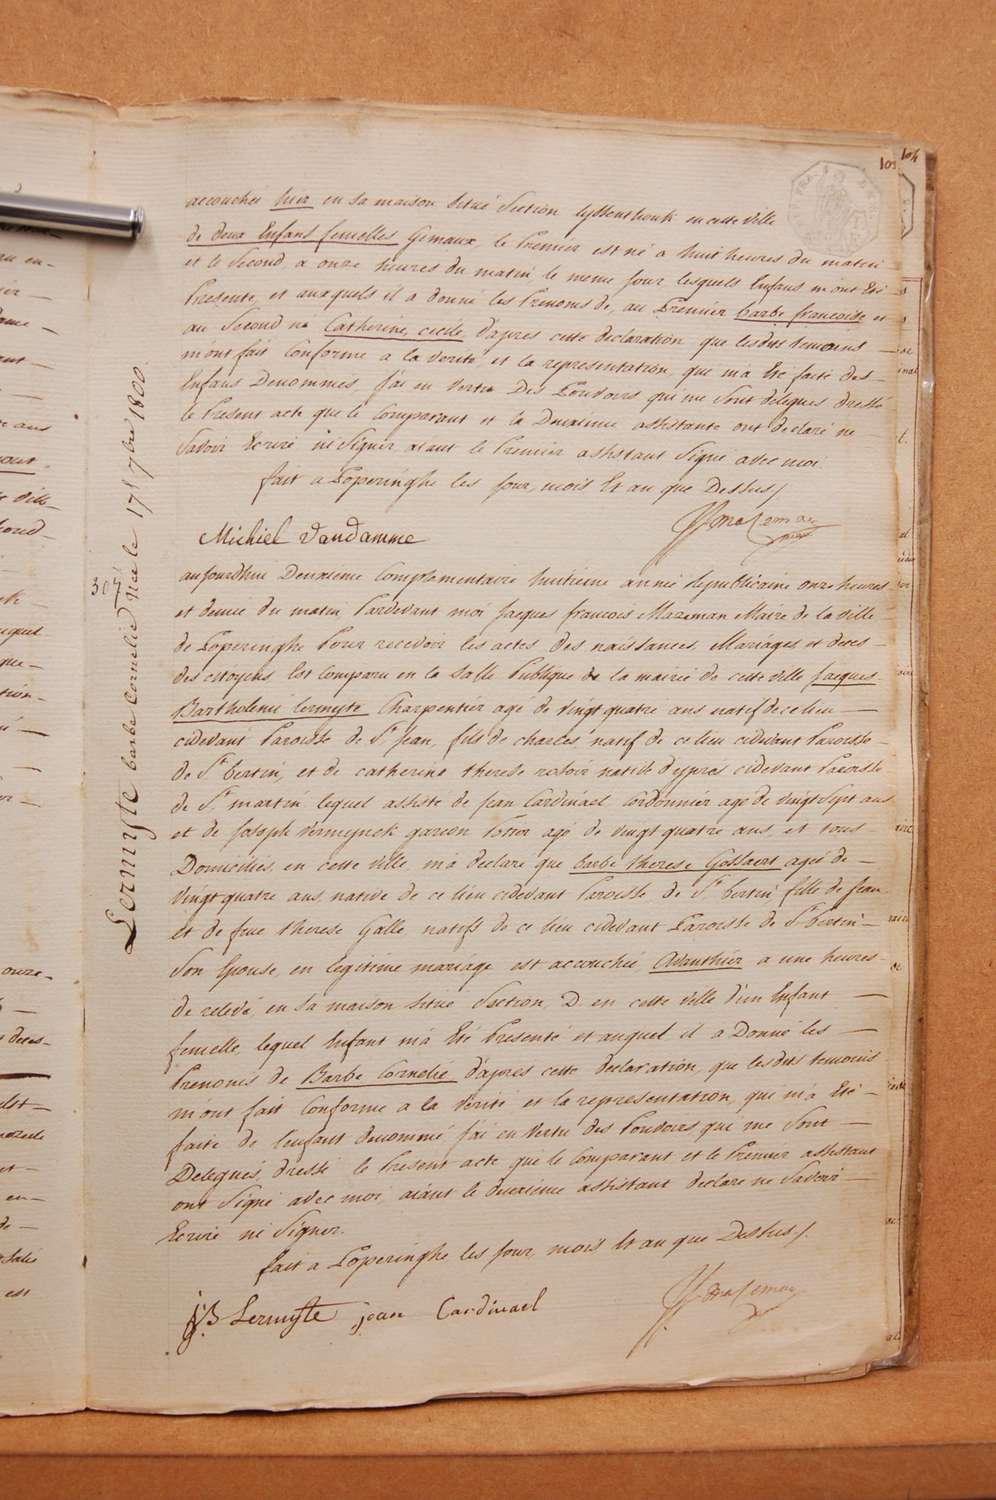 103
104
accouchée hier en sa maison situé Section en cette ville
de deux Enfans femelles Gemaux, le Premier est né a huit heures du matin
et le Second, a onze heures du matin, le meme jour lesquels Enfans m'ont Eté
Presenté, et auxquels il a donné les Prenoms de, au Premier barbe francoise et
au Second né Catherine, cecile d'apres cette declaration que lesdits temoins —
m'ont fait Conforme a la verité, et la representation, que m'a Eté faite des —
Enfans Denommés, J'ai en vertu Des Pouvoirs qui me Sont delegues dressé
le Present acte que le Comparant et le Deuxieme assistante ont declaré ne —
Savoir Ecrire ni Signer, aiant le Premier assistant Signé avec moi.
fait a Poperinghe les jour, mois Et an que Dessus /.
Mazeman
Michiel Vandamme
307
Lermyte barbe Cornelie née le 17 7bre 1800
aujourdhui Deuxieme Complementaire huitieme année Republicaine onze heures
et demie du matin Pardevant moi Jacques francois Mazeman Maire de la ville
de Poperinghe Pour recevoir les actes des naissances Mariages et deces —
des citoyens Est comparu en la Salle Publique de la mairie de cette ville Jacques
Bartholemé Lermyte Charpentier agé de vingt quatre ans natif de ce lieu —
cidevant Paroisse de St Jean, fils de charles, natif de ce lieu cidevant Paroisse —
de St bertin, et de catherine therese native d'ypres cidevant Paroisse
de St martin, lequel assisté de Jean Cardinael Cordonnier agé de vingt Sept ans
et de Joseph Vermeynck garcon Potier agé de vingt quatre ans, et tous —
Domiciliés, en cette ville, m'a declaré que barbe therese Gossaert agée de —
vingt quatre ans, native de ce lieu cidevant Paroisse de St bertin fille de Jean
et de feue therese Galle natifs de ce lieu cidevant Paroisse de St bertin —
Son Epouse, en legitime mariage est accouchée Avanthier a une heures —
de relevé, en sa maison situé Section, D. en cette ville d'un Enfant —
femelle, lequel Enfant m'a Eté Presenté et auquel il a Donné les —
Prenoms de Barbe Cornelie d'apres cette declaration, que lesdits temoins
m'ont fait Conforme a la Verité et la representation, que m'a Eté —
faite de l'enfant denommé J'ai en Vertu des Pouvoirs qui me Sont —
Delegués, dressé le Present acte que le Comparant et le Premier assistant
ont Signé avec moi, aiant le deuxieme assistant declare ne Savoir —
Ecrire ni Signer.
fait a Poperinghe les jour, mois Et an que Dessus /.
JB Lermyte jean Cardinael
Mazeman